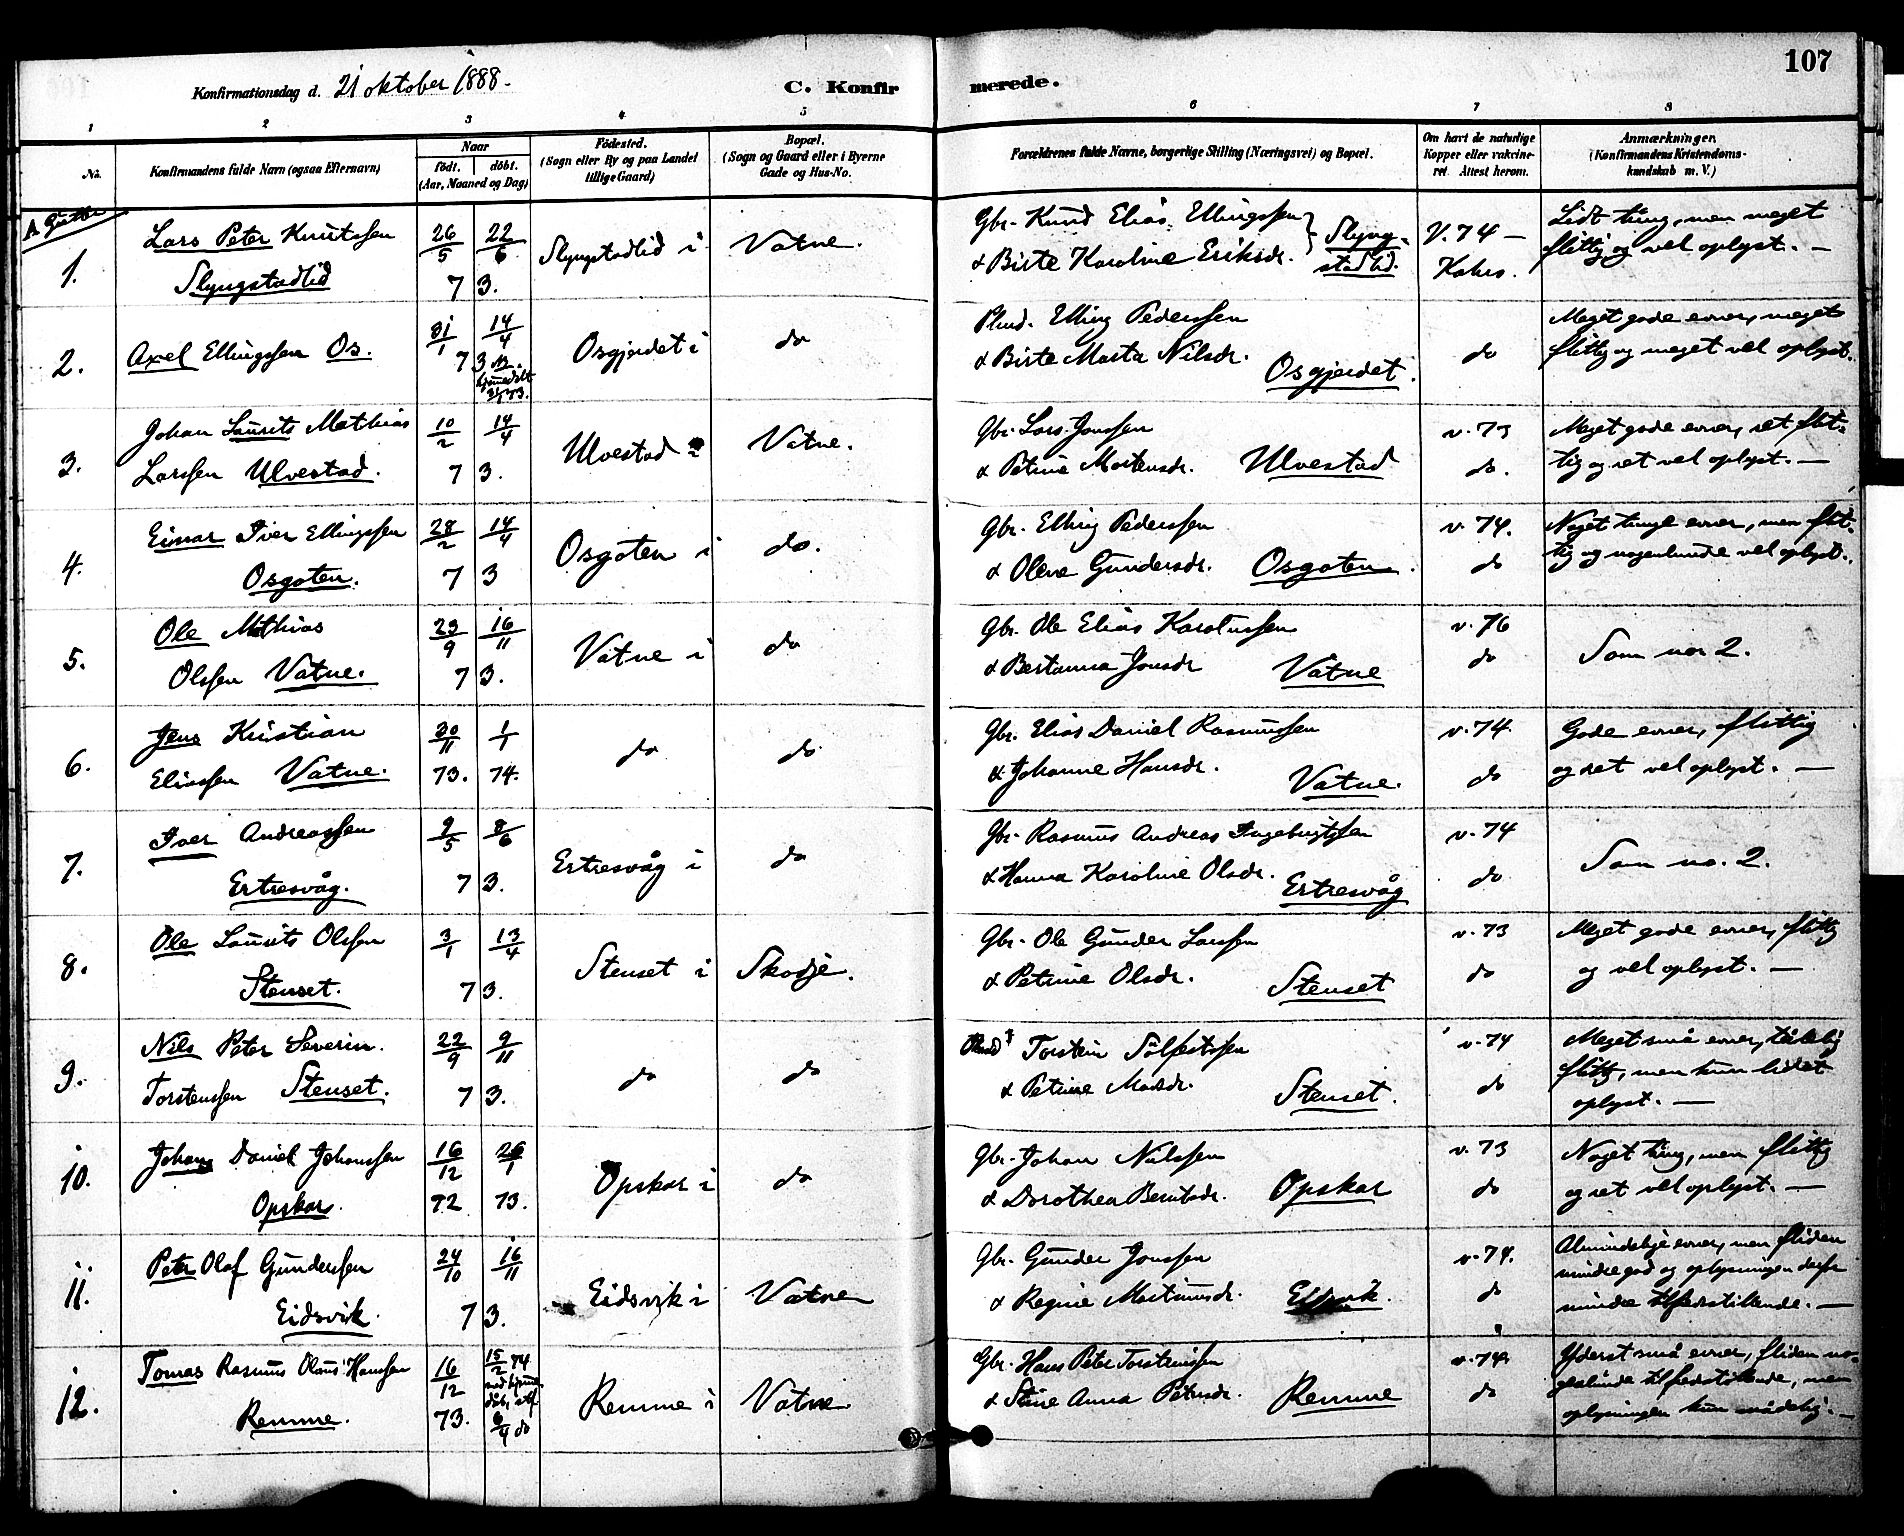 107
Konfirmationsdag d. 21 oktober 1888.
C. Konfirmerede.
1 2 3 4 5 6 7 8
No.
Konfirmandens fulde Navn (ogsaa Efternavn)
Naar
födt. döbt.
(Aar, Maaned og Dag)
Födested.
(Sogn eller By og paa Landet
tillige Gaard)
Bopæl.
(Sogn og Gaard eller i Byerne
Gade og Hus-No.
Forældrenes fulde Navne, borgerlige Stilling (Næringsvei) og Bopæl.
Om havt de naturlige
Kopper eller vakcineret. Attest herom.
Anmærkninger.
(Konfirmandens Kristendomskundskab m. V.)
A. Gutter
1. Lars Peter Knutssen
Slyngstadlid
26/5 22/6
73.
Slyngstadlid i Vatne.
Gbr. Knud Elias Ellingssen
& Birte Karoline Eriksdr. Slyngstadlid.
V. 74 –
Lidt tung, men meget
flittig og vel oplyst. –
2. Axel Ellingssen Os.
31/1 14/4
73
hjemmedöbt
Osgjerdet i do
Elling Pederssen
& Birte Marta Nilsdr. Osgjerdet.
do
Meget gode evner, meget
flittig og meget vel oplyst.
3. Johan Laurits Mathias
Larssen Ulvestad.
10/2 14/4
73.
Ulvestad i Vatne.
Gbr. Lars Jonssen
& Petrine Mortensdr. Ulvestad
v. 73
do.
Meget gode evner, ret flittig og ret vel oplyst. –
4. Einar Iver Ellingssen
Osgoten.
28/2 14/4
73
Osgoten i do.
Gbr. Elling Pederssen
& Olene Gundersdr. Osgoten.
v. 74.
do
Noget tunge evner, men flittig og nogenlunde vel oplyst.
5. Ole Mathias
Olssen Vatne.
23/9 16/11
73.
Vatne i do
Gbr. Ole Elias Karstenssen
& Bertanna Jonsdr Vatne
v. 76
do
Som no. 2.
6. Jens Kristian
Eliassen Vatne.
30/11 1/1
73. 74.
do do
Gbr. Elias Daniel Rasmussen
& Johanne Hansdr. Vatne.
v. 74.
do
Gode evner, flittig
og ret vel oplyst. –
7. Iver Andreassen
Ertresvåg.
9/5 8/6
73.
Ertresvåg i do
Gbr. Rasmus Andreas Ingebrigtssen
& Hanna Karoline Olsdr. Ertresvåg
v. 74
do
Som no. 2.
8. Ole Laurits Olssen
Stenset.
3/1 13/4
73.
Stenset i Skodje.
Gbr. Ole Gunder Larssen
& Petrine Olsdr. Stenset
v. 73
do
Meget gode evner, flittig
og vel oplyst. –
9. Nils Peter Severin
Torstenssen Stenset.
22/9 9/11
73.
do do
Torstein Sölfestssen
& Petrine Madsdr. Stenset.
v. 74
do
Meget små evner, tålelig
flittig, men kun lidet
oplyst. –
10. Johan Daniel Johanssen
Opskar.
16/12 26/1
72 73.
Opskar i do
Gbr. Johan Nilssen
& Dorothea Berntsdr. Opskar
v. 73
do
Noget tung, men flittig
og ret vel oplyst. –
11. Peter Olaf Gunderssen
Eidsvik.
24/10 16/11
73.
Eidsvik i Vatne
Gbr. Gunder Jonssen
& Regine Martinusdr. Eidsvik.
v. 74.
do
Almindelige evner, men fliden
mindre god og oplysningen derfor
mindre tilfredsstillende. –
12. Tomas Rasmus Olaus Hanssen
Remme.
16/12 15/2 74
73. 6/4 do
Remme i Vatne
Gbr. Hans Peter Torsteinssen
& Stine Anna Petersdr. Remme
v. 74.
do
Yderst små evner, fliden nogenlunde tilfredsstillende, men
oplysningen kun mådelig. –